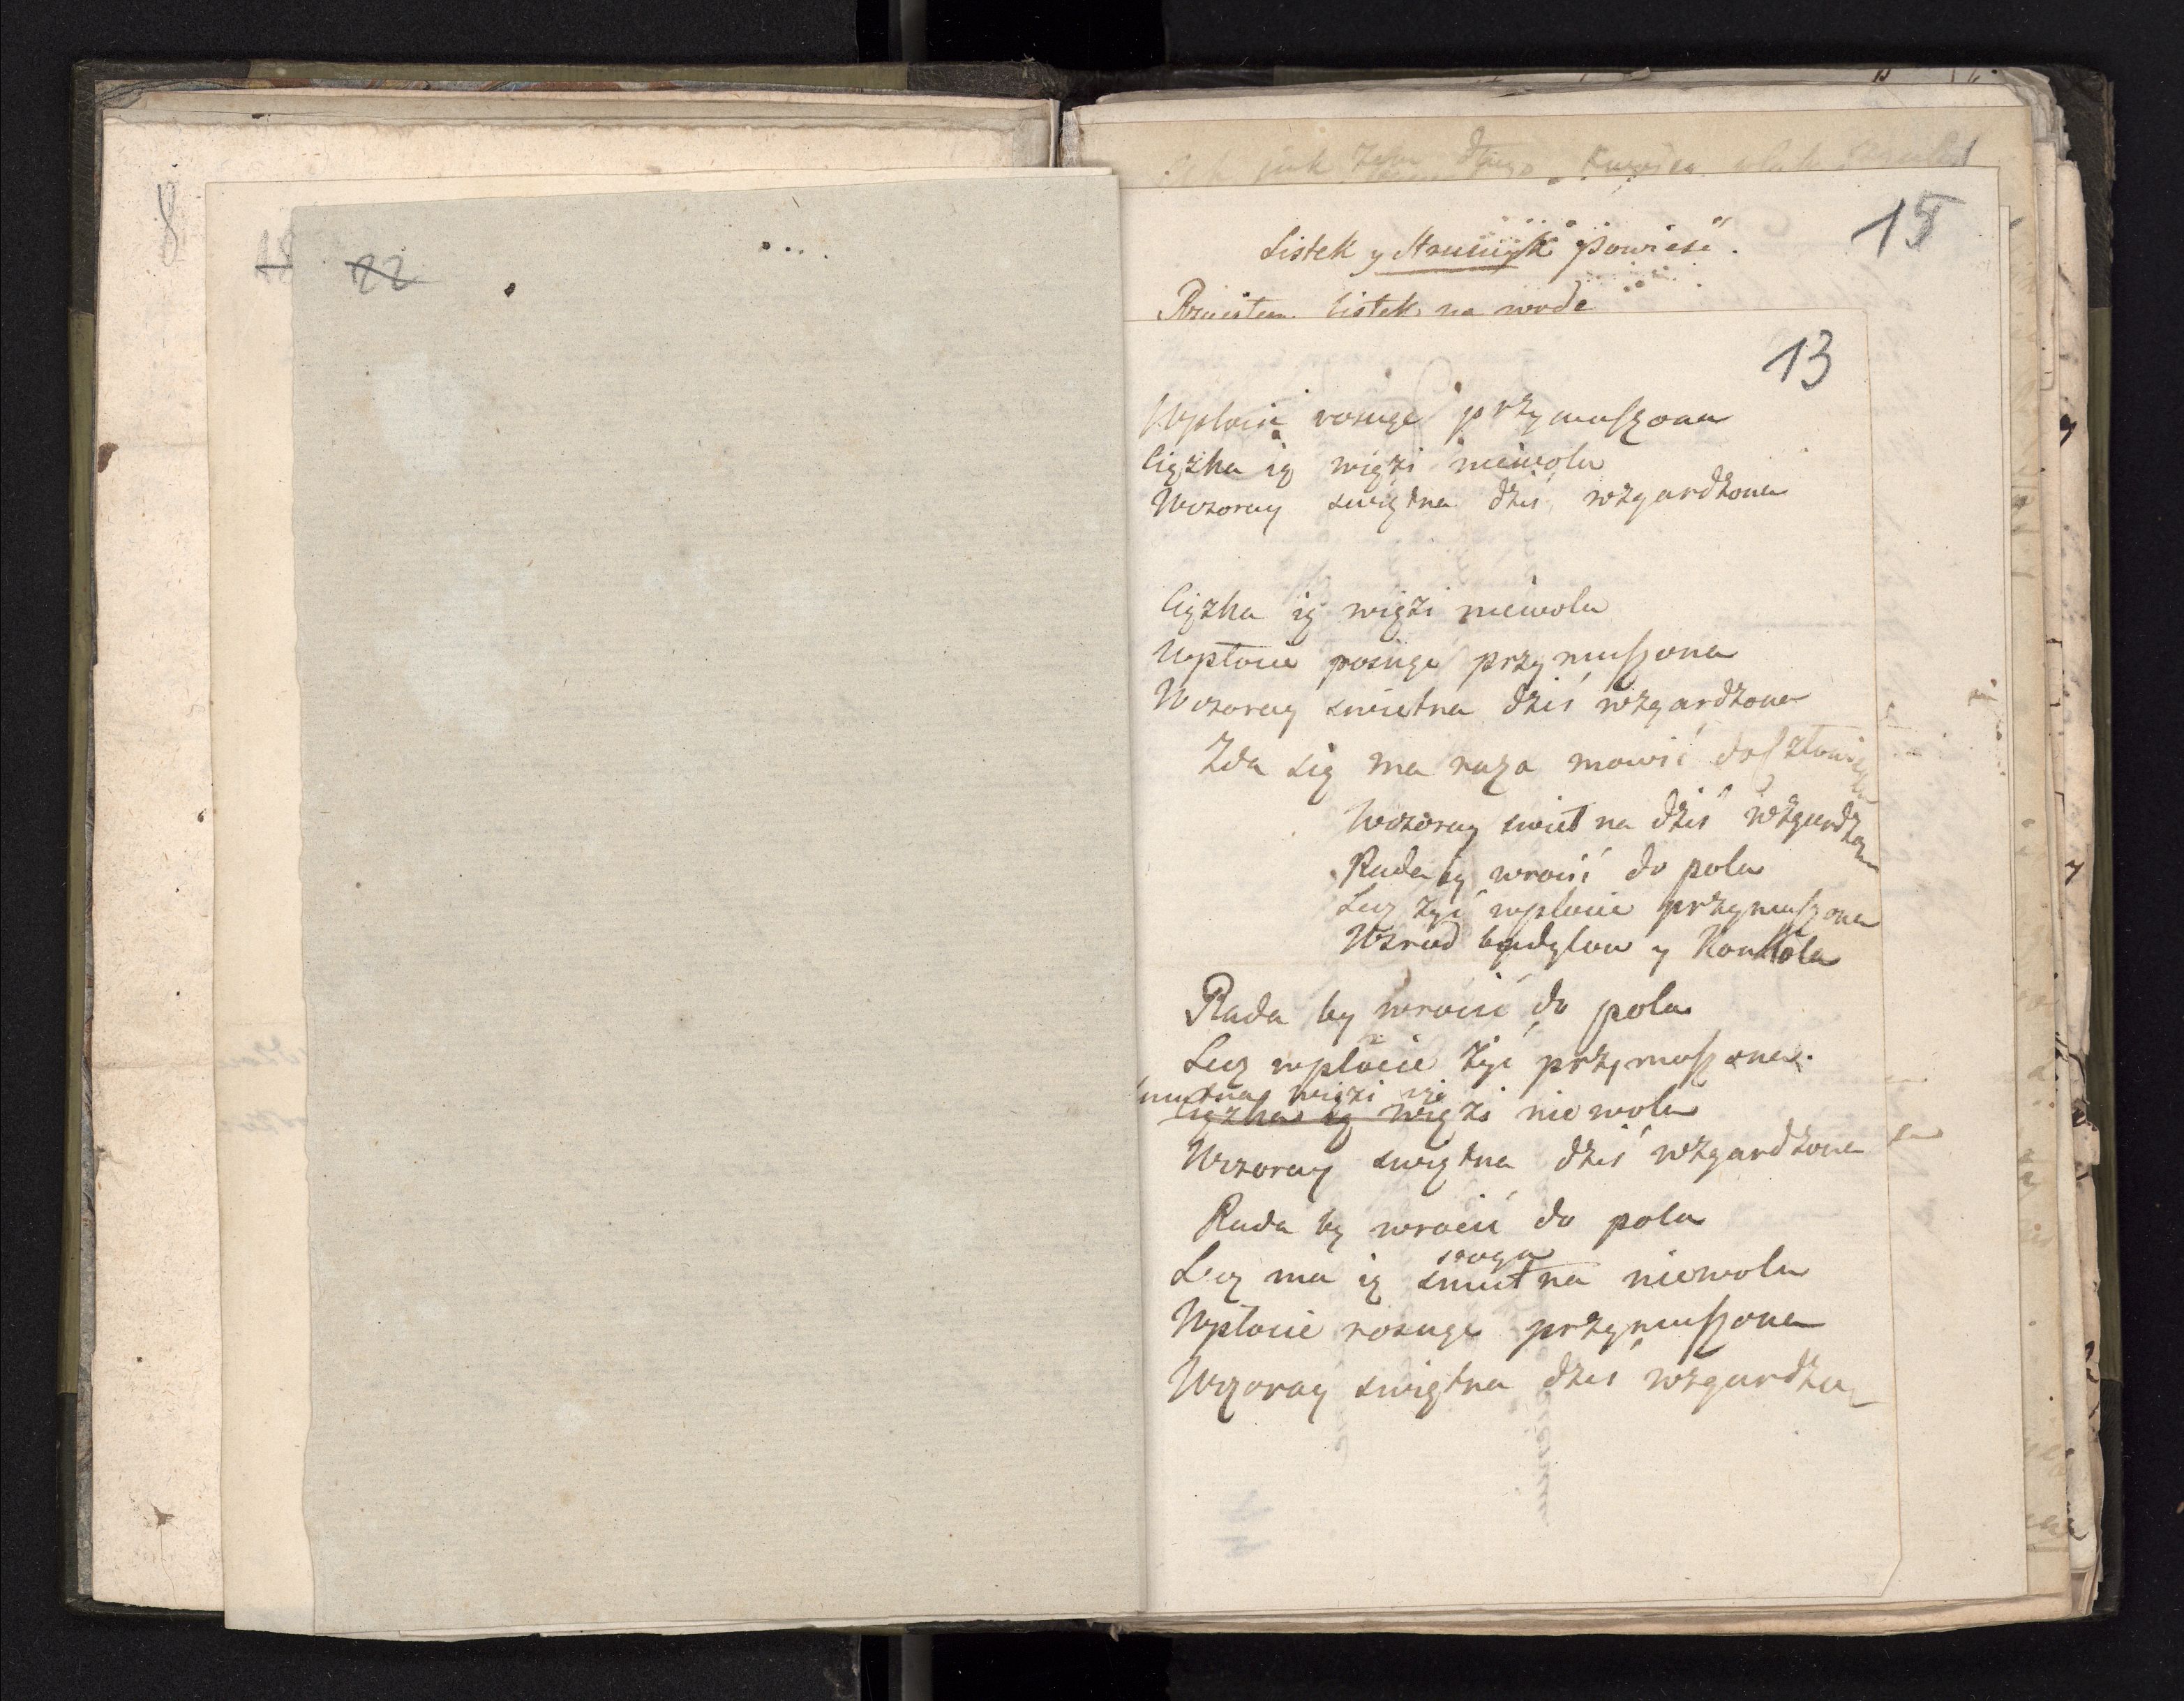 8
18
22
15
Listek y Strumyk powieść.
listek na wode
13
Wplocie rosnge przymuszona
Ciężka ię więzi niewola
Wczoray swiętna dziś wzgardzona
Ciężka ię więzi niewola
Wplocie rosnge przymuszona
Wczoray swietna dziś wzgardzona
Zda się ma roza mowić do
Wczoray swietna dziś wzgardzona
Rada by wrocić do pola
Lecz żyć wplocie przymuszona
Wsrod badylow y Konkola
Rada by wrocić do pola
Lecz wplocie żyć przymuszona.
smutna więzi ię
Ciężka ię więzi niewola
Wczoray swiętna dziś wzgardzona
Rada by wrocić do pola
sroga
Lecz ma ię smutna niewola
Wplocie rosnge przymuszona
Wczoray swiętna dziś wzgardzona